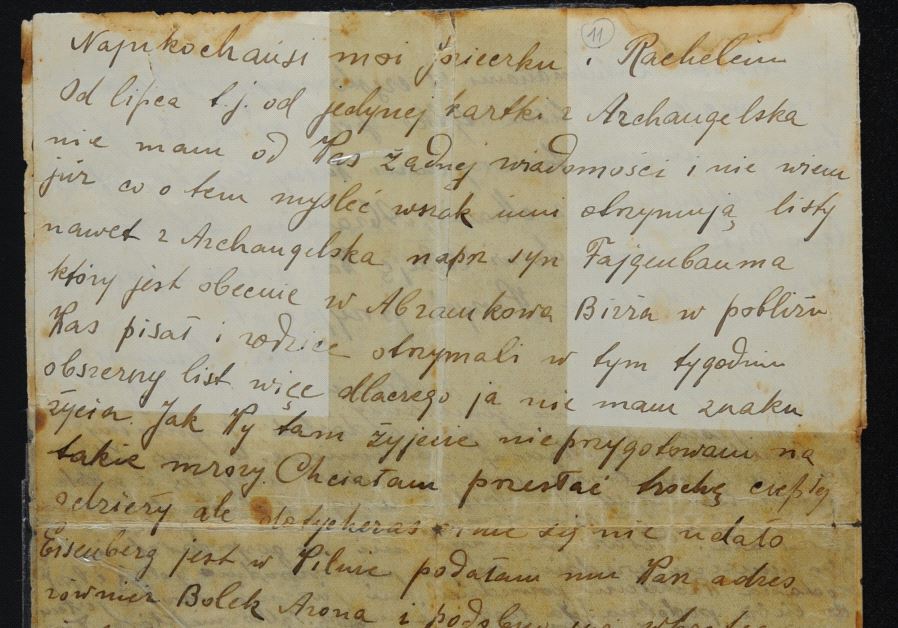 11
Najukochańsi moi Józierku i Rachelciu
Od lipca t.j. od jedynej kartki z Archangelska
nie mam od Was żadnej wiadomości i nie wiem
już co o tem myśleć wszak inni otrzymują listy
nawet z Archangelska napr syn Fajgenbauma
który jest obecnie w Abramkowa Birża w pobliżu
Was pisał i rodzice otrzymali w tym tygodniu
obszerny list więc dlaczego ja nie mam znaku
życia. Jak Wy tam żyjecie nieprzygotowani na
takie mrozy. Chciałam przesłać trochę ciepłej
odzieży ale dotychczas mnie się nie udało
Eisenberg jest w Wilnie podałam mu Wasz adres
również Bolek Arona i